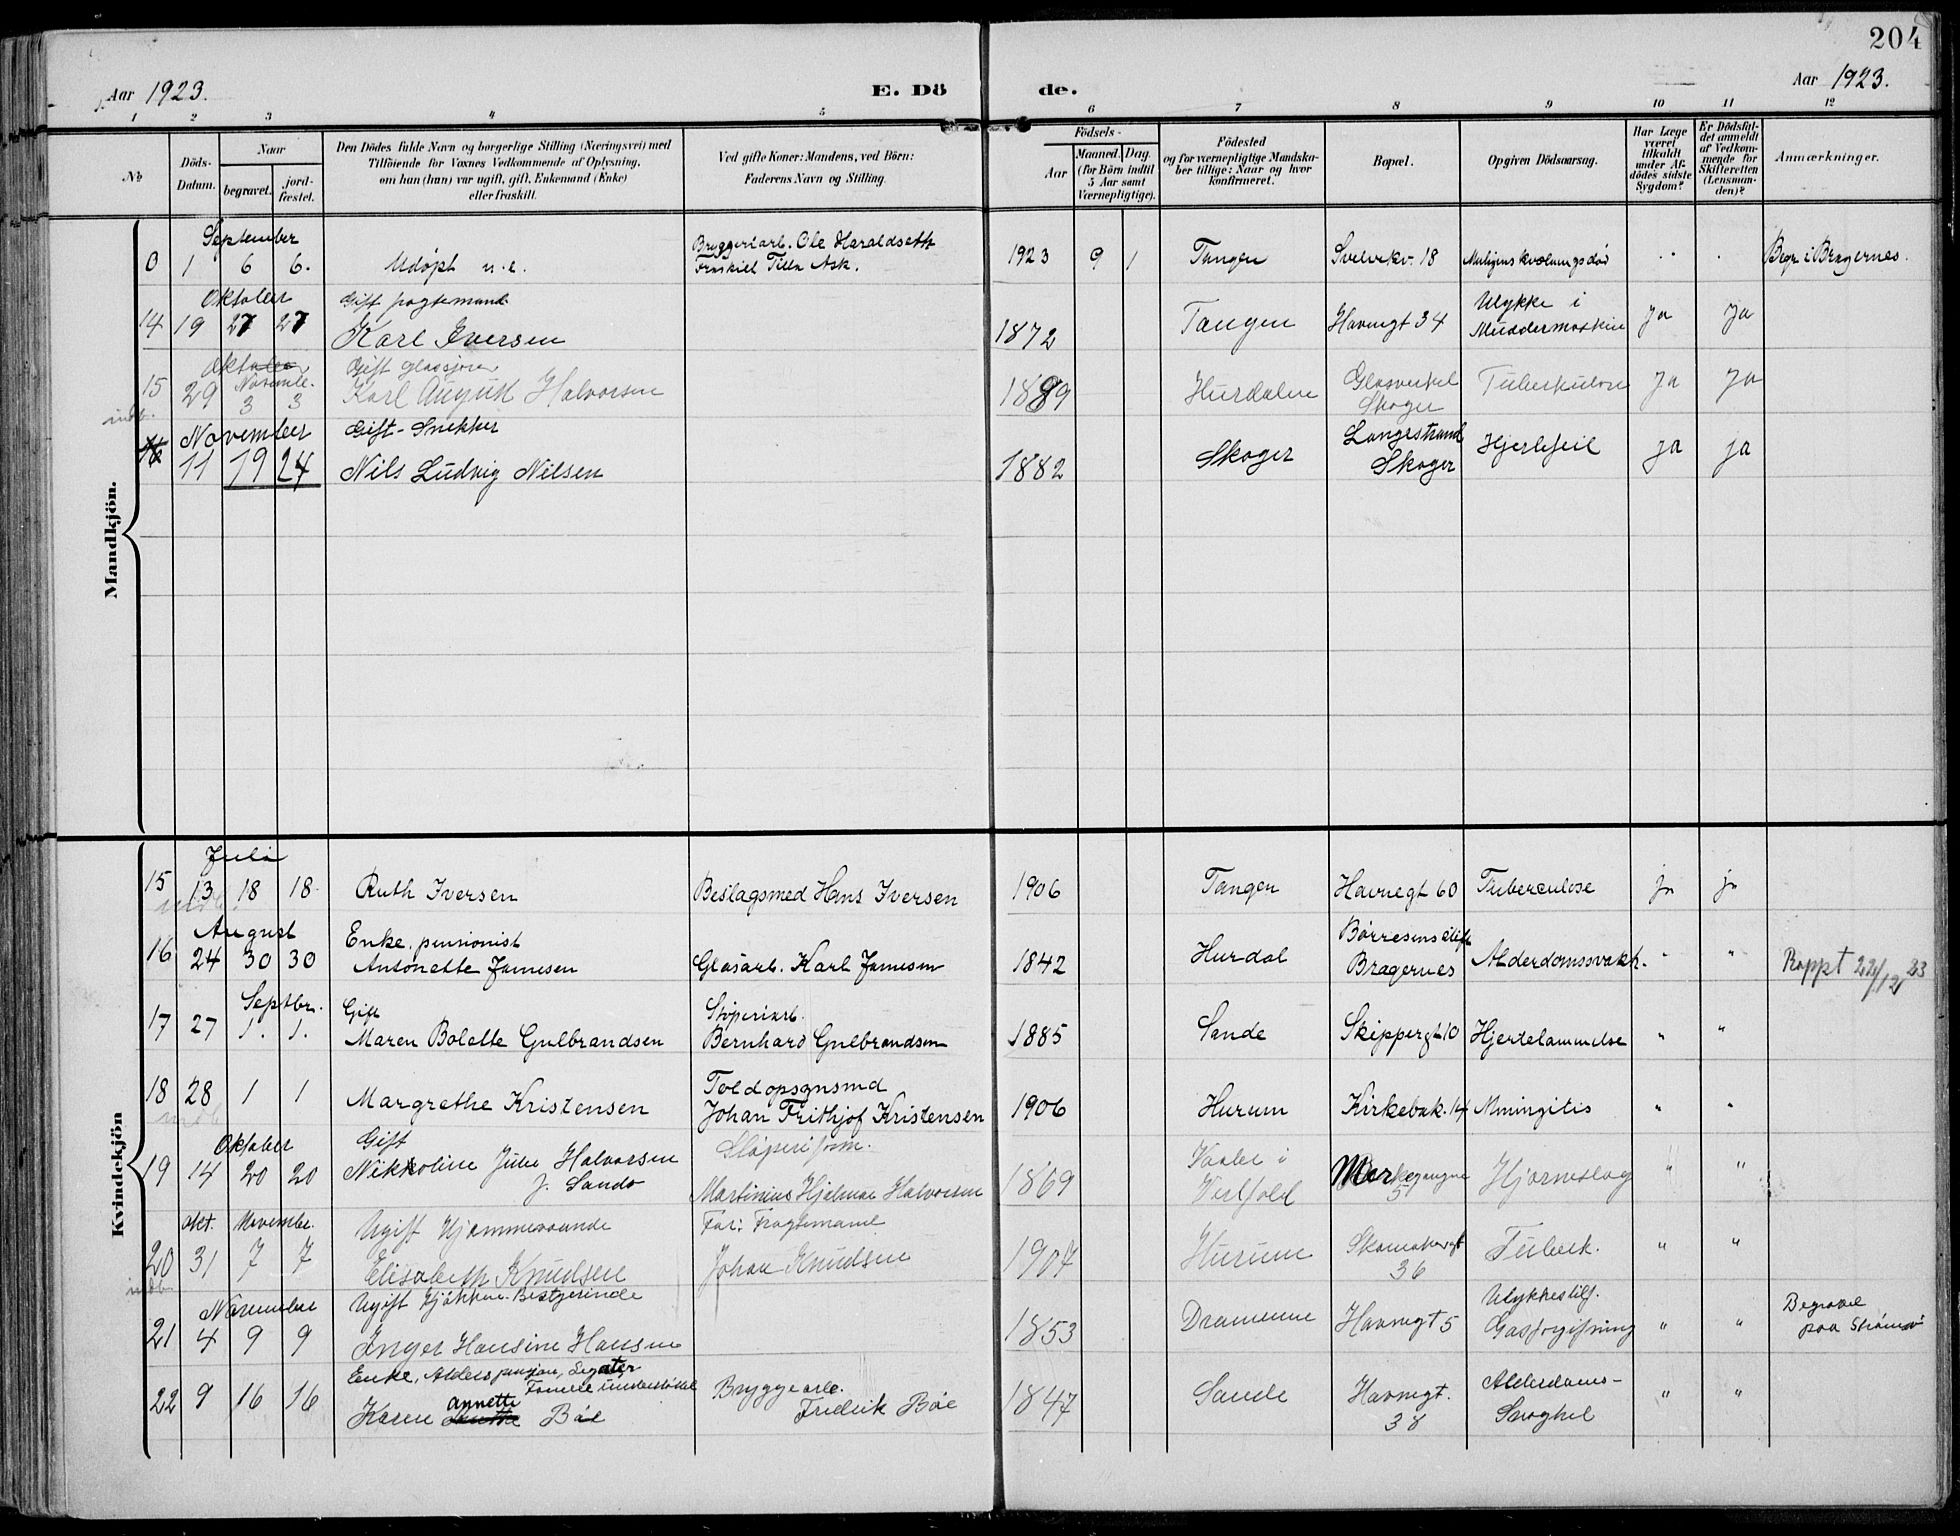 204
Aar 1923.
E. Dö
de.
Aar 1923.
1 2 3 4 5 6 7 8 9 10 11 12
No
Döds-Datum.
Naar
begravet.
jord-fæstet.
Den Dödes fulde Navn og borgerlige Stilling (Næringsvei) med
Tilföiende for Voxnes Vedkommende af Oplysning,
om han (hun) var ugift, gift, Enkemand (Enke)
eller fraskilt.
Ved gifte Koner: Mandens, ved Börn:
Faderens Navn og Stilling.
Födsels-
Aar
Maaned. Dag.
(for Börn indtil
5 Aar samt
Værnepligtige).
Födested
og for værnepligtige Mandska-
ber tillige: Naar og hvor
konfirmeret.
Bopæl.
Opgiven Dödsaarsag.
Har Læge
været
tilkaldt
under Af-
dödes sidste
Sygdom?
Er Dödsfal-
det anmeldt
af Vedkom-
mende for
Skifteretten
(Lensman-
den)?
Anmærkninger.
Mandkjön.
September
0 1 6 6. Udøpt u.e.
Bryggeriarb. Ole Haraldseth
Fraskilt Tilla Ask.
1923 9 1 Tangen Svelvikv. 18 Muligens kvælningsdød " " Begr. i Bragernes.
Oktober
14 19 27 27
Gift fragtemand
Karl Iversen
1872 Tangen Havnegt 34
Ulykke i
Muddermaskin
Ja Ja
Oktober
15 29
Novembe.
3 3
Gift
Karl August Halvorsen
1889 Hurdalen
Glasverket
Skoger
Tuberkulose Ja Ja
indb.
November
16 11 19 24
Gift - Snekker
Nils Ludvig Nilsen
1882 Skoger
Langestrand
Skoger
Hjertefeil Ja ja
Kvindekjön
Juli
15 13 18 18 Ruth Iversen Beslagsmed Hans Iversen 1906 Tangen Havnegt 60 Tuberculose ja ja
indb
August
16 24 30 30
Enke, pensionist
Antonette Jamesen
Glasarb. Karl Jamesen
1842 Hurdal
Børresens stift
Bragernes
Alderdomssvakh. " "
Rappt 22/12 23
Septbr.
17 27 1. 1.
Gift
Maren Bolette Gulbrandsen
Støperiarb.
Bernhard Gulbrandsen
1885 Sande Skippergt 10 Hjertelammelse " "
18 28 1 1 Margrethe Kristensen
Toldopsynsmd
Johan Frithjof Kristensen
1906 Hurum Kirkebak. 14 Mningitis " "
indb
Oktober
19 14 20 20
Gift
Nikkoline Julie Halvorsen
f. Sando
Støperiform.
Martinius Hjelmar Halvorsen
1869
Vaale i
Vestfold
5
Hjerneslag " "
Okt. November.
20 31 7 7
Ugift Hjemmeværende
Elisabeth Knudsen
Far: Fragtemand
Johan Knudsen
1907 Hurum
Skomakergt
36
Tuberk. " "
indb.
November
21 4 9 9
Ugift Kjøkken-Bestyrerinde
Inger Hansine Hansen
1853 Drammen Havnegt 5
Ulykkestilf.
Gasforgiftning
" "
Begravet
paa Strømsø
22 9 16 16
Enke, Alderspensjon, Legater
Familie understøttet
Karen Annette Bøe
Bryggearb.
Fredrik Bøe
1847 Sande
Havnegt.
38
Alderdoms-
Svaghet
" "